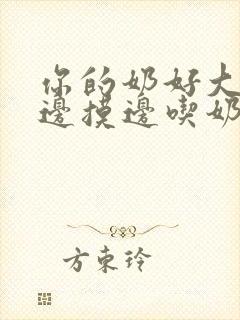 你的奶好大
邊摸邊喫奶
方東玲